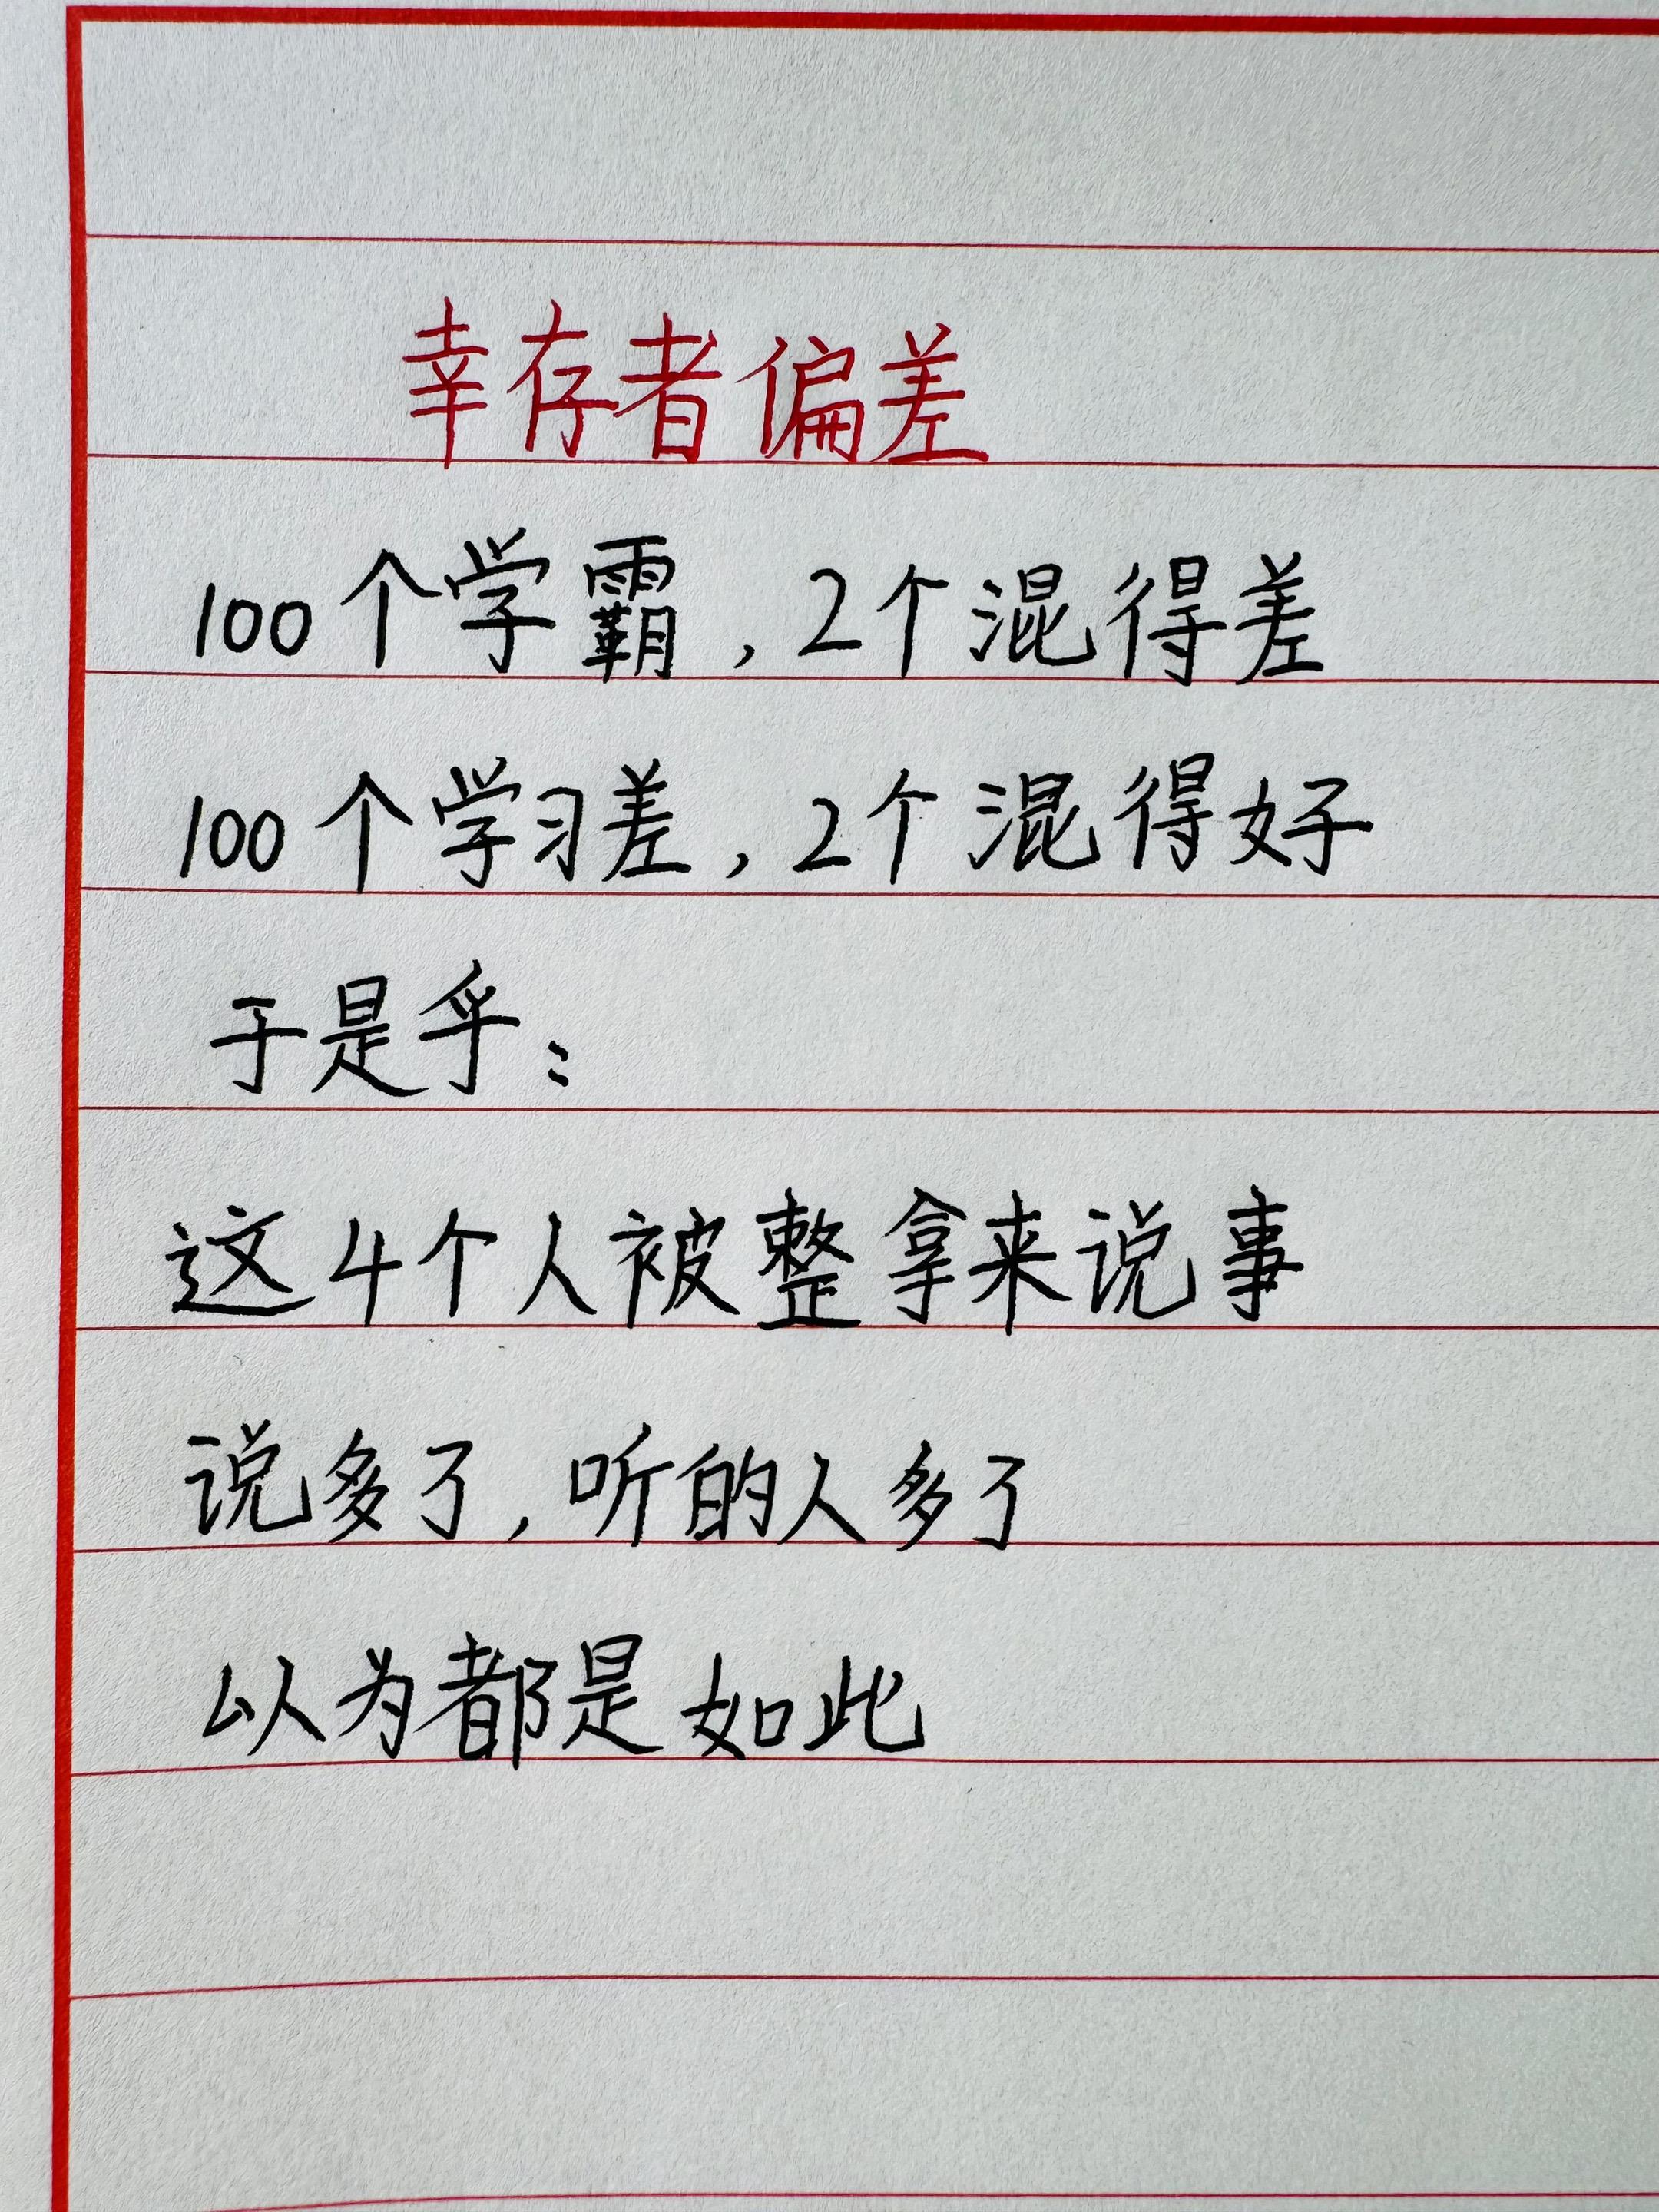 幸存者偏差
100个学霸，2个混得差
100个学习差，2个混得好
于是乎：
这4个人被整拿来说事
说多了，听的人多了
以为都是如此